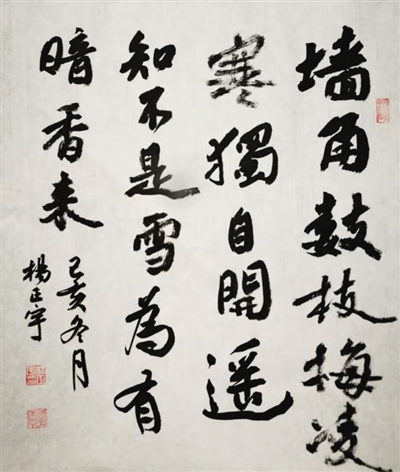 墙角数枝梅凌
寒獨自開遥
知不是雪為有
暗香来
己亥冬月
楊正宇